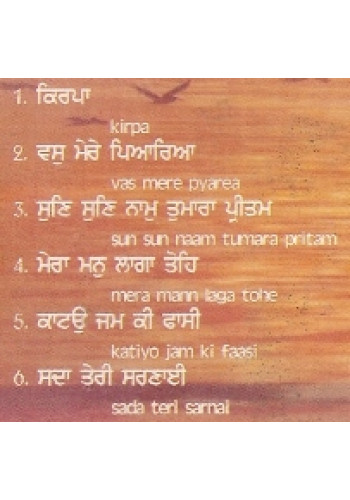 1. ਕਿਰਪਾ
kirpa
2. ਵਸੁ ਮੇਰੇ ਪਿਆਰਿਆ
vas mere pyarea
3. ਸੁਣਿ ਸੁਣਿ ਨਾਮੁ ਤੁਮਾਰਾ ਪ੍ਰੀਤਮ
sun sun naam tumara pritam
4. ਮੇਰਾ ਮਨੁ ਲਾਗਾ ਤੋਹਿ
mera mann laga tohe
5. ਕਾਟਉ ਜਮ ਕੀ ਫਾਸੀ
katiyo jam ki faasi
6. ਸਦਾ ਤੇਰੀ ਸਰਣਾਈ
sada teri sarnai